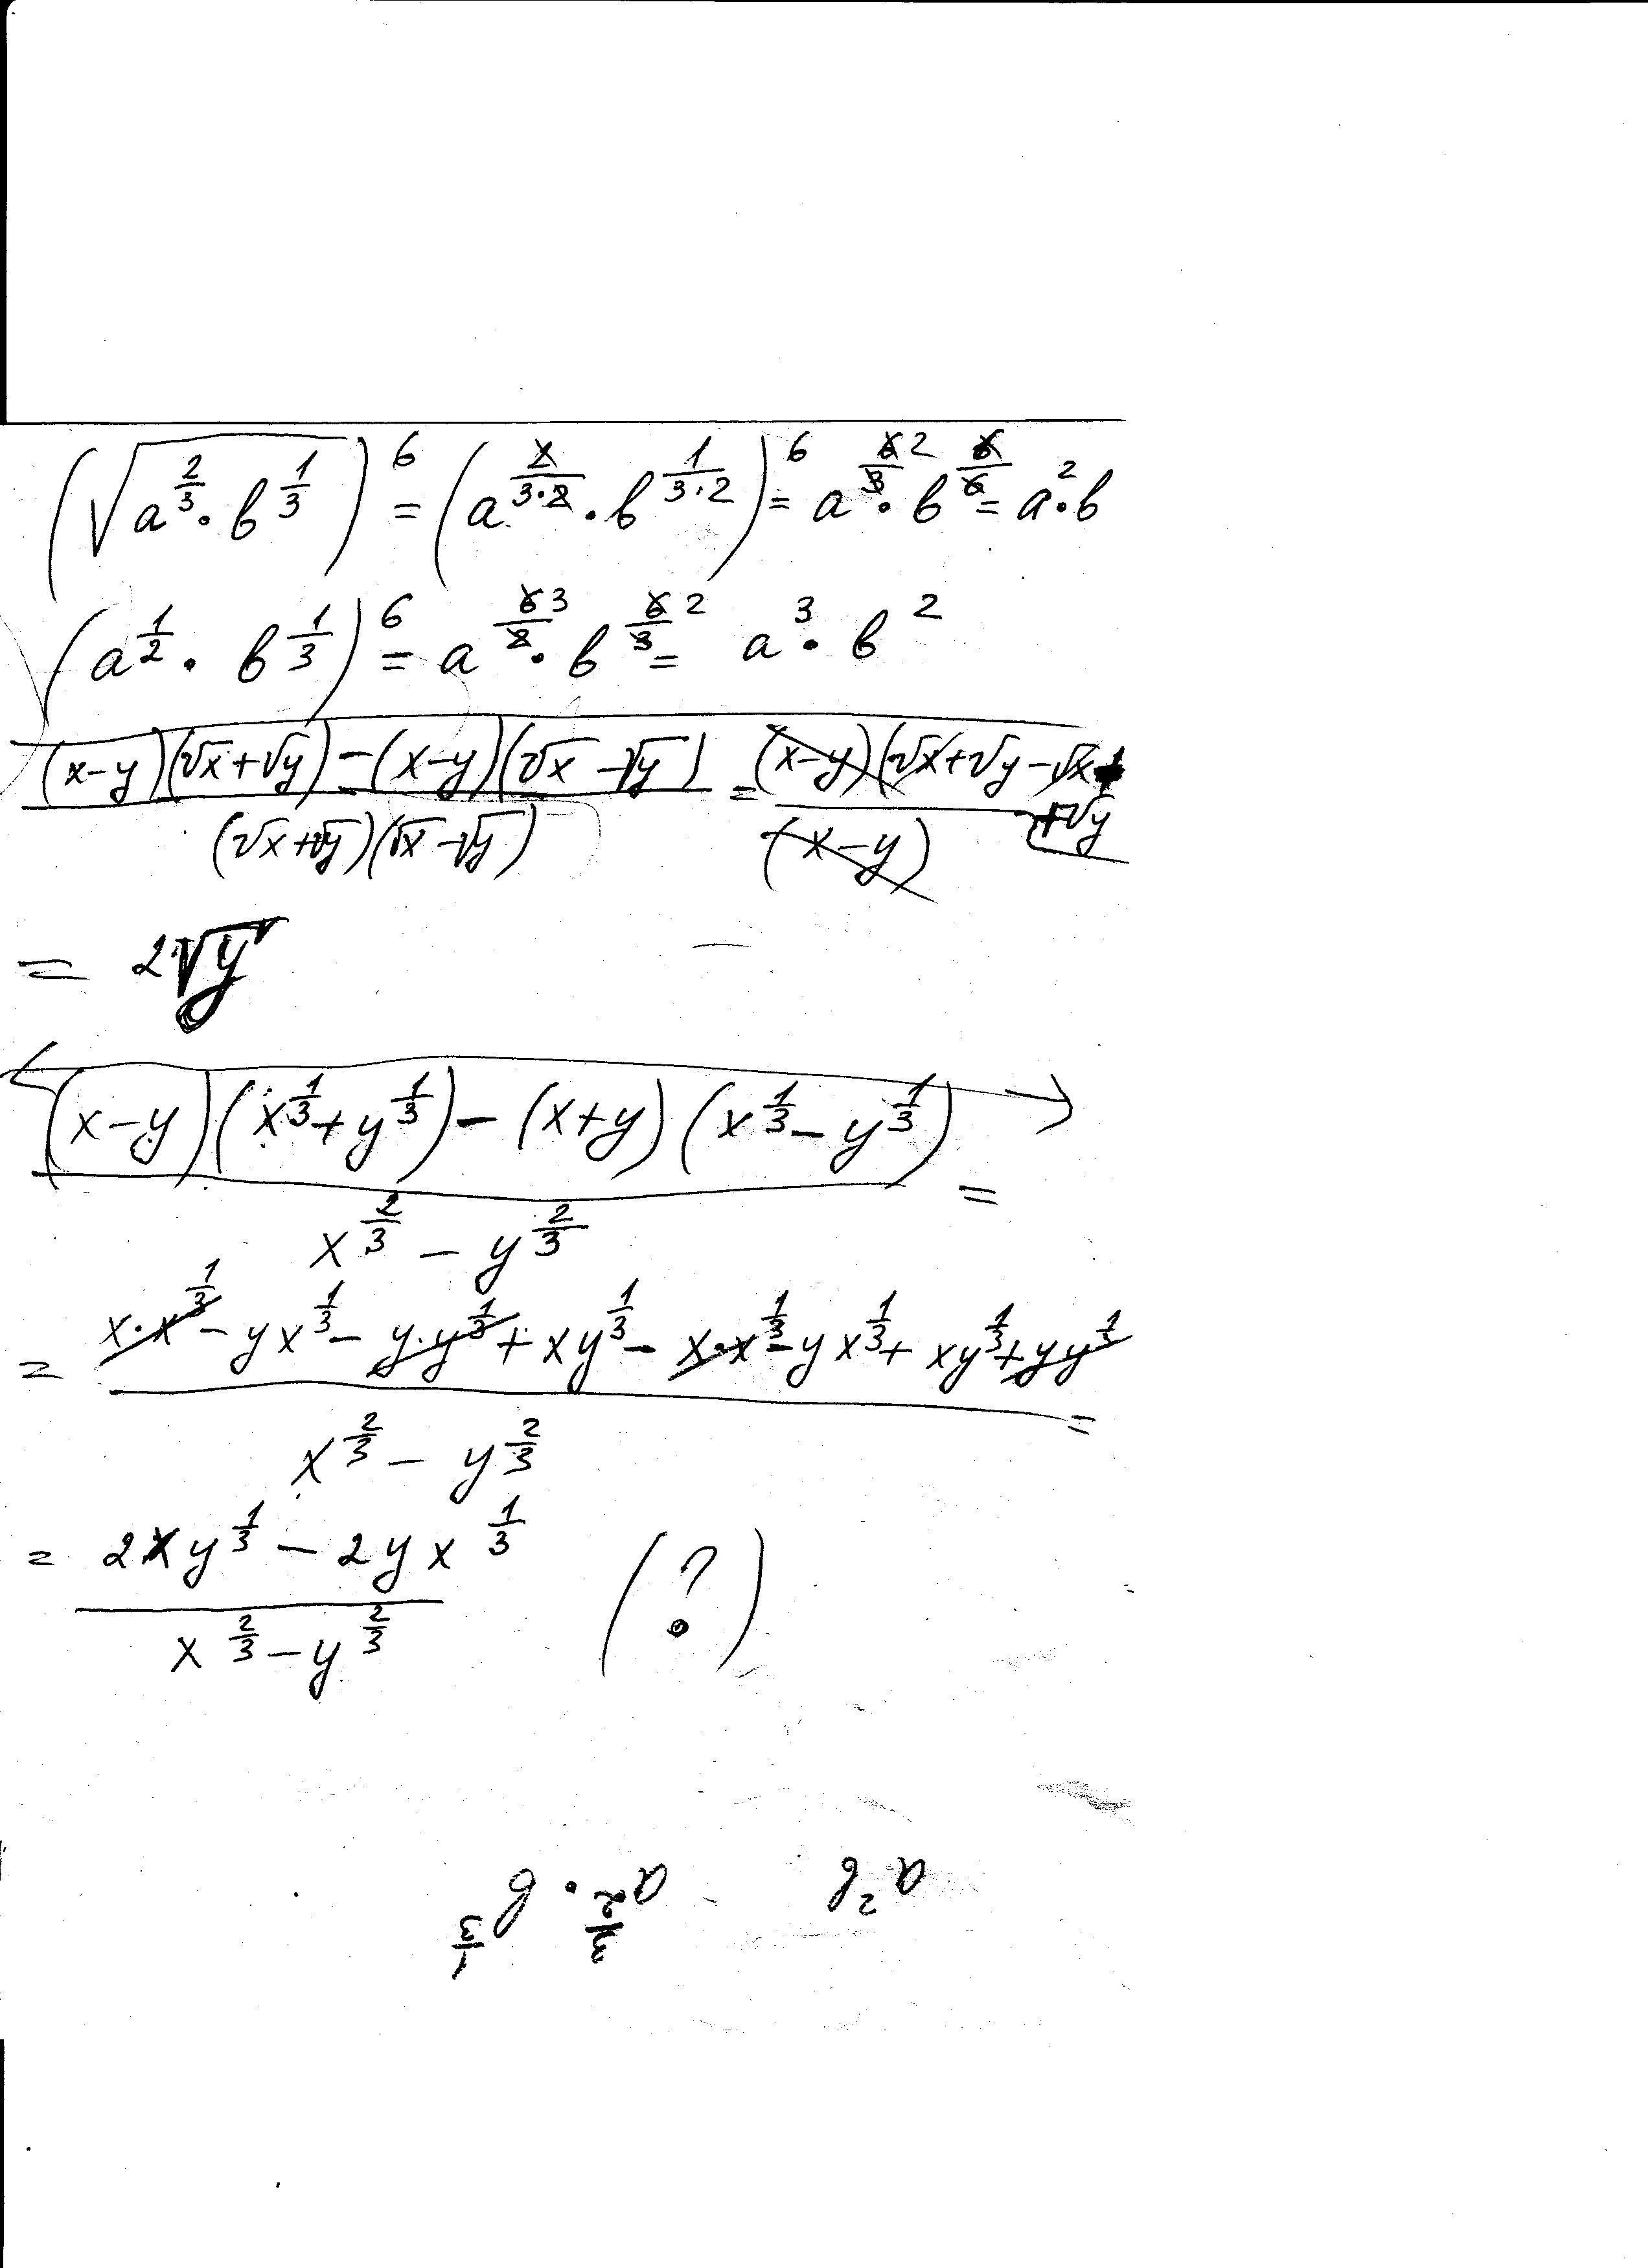 (√(a^(2/3) · b^(1/3)))^6 = (a^(2/(3·2)) · b^(1/(3·2)))^6 = a^(6/3) 2 · b^(6/6) = a^2 · b
(a^(1/2) · b^(1/3))^6 = a^(6/2) 3 · b^(6/3) 2 = a^3 · b^2
((x-y)(√x+√y) - (x-y)(√x-√y)) / ((√x+√y)(√x-√y)) = ((x-y)(√x+√y-√x+√y)) / (x-y)
= 2√y
((x-y)(x^(1/3)+y^(1/3)) - (x+y)(x^(1/3)-y^(1/3))) / (x^(2/3) - y^(2/3)) =
= (x·x^(1/3) - yx^(1/3) - y·y^(1/3) + xy^(1/3) - x·x^(1/3) - yx^(1/3) + xy^(1/3) + yy^(1/3)) / (x^(2/3) - y^(2/3)) =
= (2xy^(1/3) - 2yx^(1/3)) / (x^(2/3) - y^(2/3)) (?)
a^2 b a^(3/2) · b^(1/3)